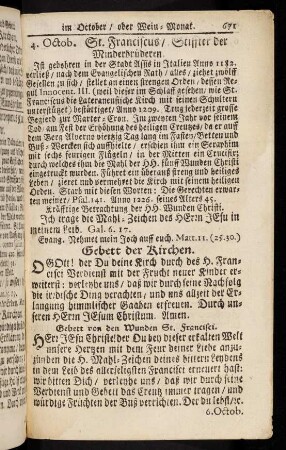 im October / oder Wein-Monat. 671
4. Octob. St. Franciscus / Stiffter der
Minderbrüderen.
Ist gebohren in der Stadt Assis in Italien Anno 1182.
verließ / nach dem Evangelischen Rath / alles / ziehet zwölff
Gesellen zu sich / stellet an einen strengen Orden / dessen Re-
gul Innocent. III. (weil dieser im Schlaf gesehen / wie St.
Franciscus die Lateranensisch Kirch mit seinen Schultern
unterstützet) bestättiget / Anno 1209. Trug jederzeit grosse
Begierd zur Marter-Cron. Im zweyten Jahr vor seinem
Tod / am Fest der Erhöhung des heiligen Creutzes / da er auf
dem Berg Alverno viertzig Tag lang im Fasten / Betten und
Buß-Wercken sich aufhielte / erschien ihm ein Seraphim
mit sechs feurigen Flügeln / in der Mitten ein Crucifix /
durch welches ihm die Mahl der HH. fünff Wunden Christi
eingetruckt wurden. Führet ein überaus streng und heiliges
Leben / zieret und vermehret die Kirch mit seinem heiligen
Orden. Starb mit diesen Worten: Die Gerechten erwar-
ten meiner / Psal. 141. Anno 1226. seines Alters 45.
Kräfftige Betrachtung der HH. Wunden Christi.
Ich trage die Mahl-Zeichen des HErrn JEsu in
meinem Leib. Gal. 6. 17.
Evang. Nehmet mein Joch auff euch. Matt. 11. (25. 30.)
Gebett der Kirchen.
O GOtt! der Du deine Kirch durch des H. Fran-
cisci Verdienst mit der Frucht neuer Kinder er-
weiterst: verleyhe uns / daß wir durch seine Nachfolg
die irrdische Ding verachten / und uns allzeit der Er-
langung himmlischer Gaaben erfreuen. Durch un-
seren HErrn JEsum Christum. Amen.
Gebett von den Wunden St. Francisci.
HErr JEsu Christe! der Du bey dieser erkalten Welt
unsere Hertzen mit dem Feur deiner Liebe anzu-
zünden die H. Mahl-Zeichen deines bittern Leydens
in dem Leib des allerseligsten Francisci erneuert hast:
wir bitten Dich / verleyhe uns / daß wir durch seine
Verdienst und Gebett das Creutz immer tragen / und
würdige Früchten der Buß verrichten. Der du lebst / rc.
6. Octob.